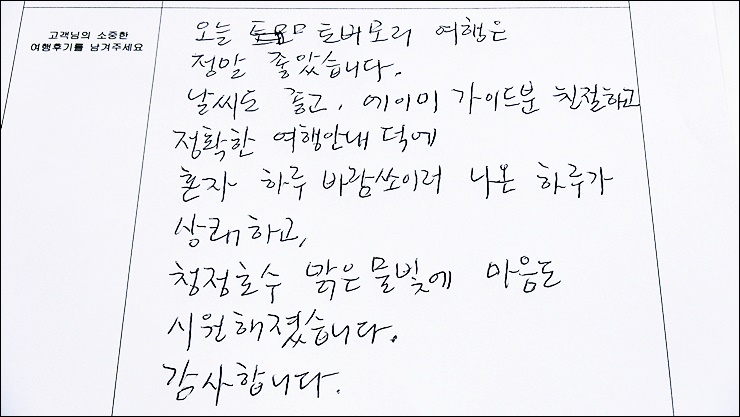 고객님의 소중한
여행후기를 남겨주세요
오늘 토버모리 여행은
정말 좋았습니다.
날씨도 좋고, 에이미 가이드분 친절하고
정확한 여행안내 덕에
혼자 하루 바람쏘이러 나온 하루가
상쾌하고,
청정호수 맑은 물빛에 마음도
시원해졌습니다.
감사합니다.